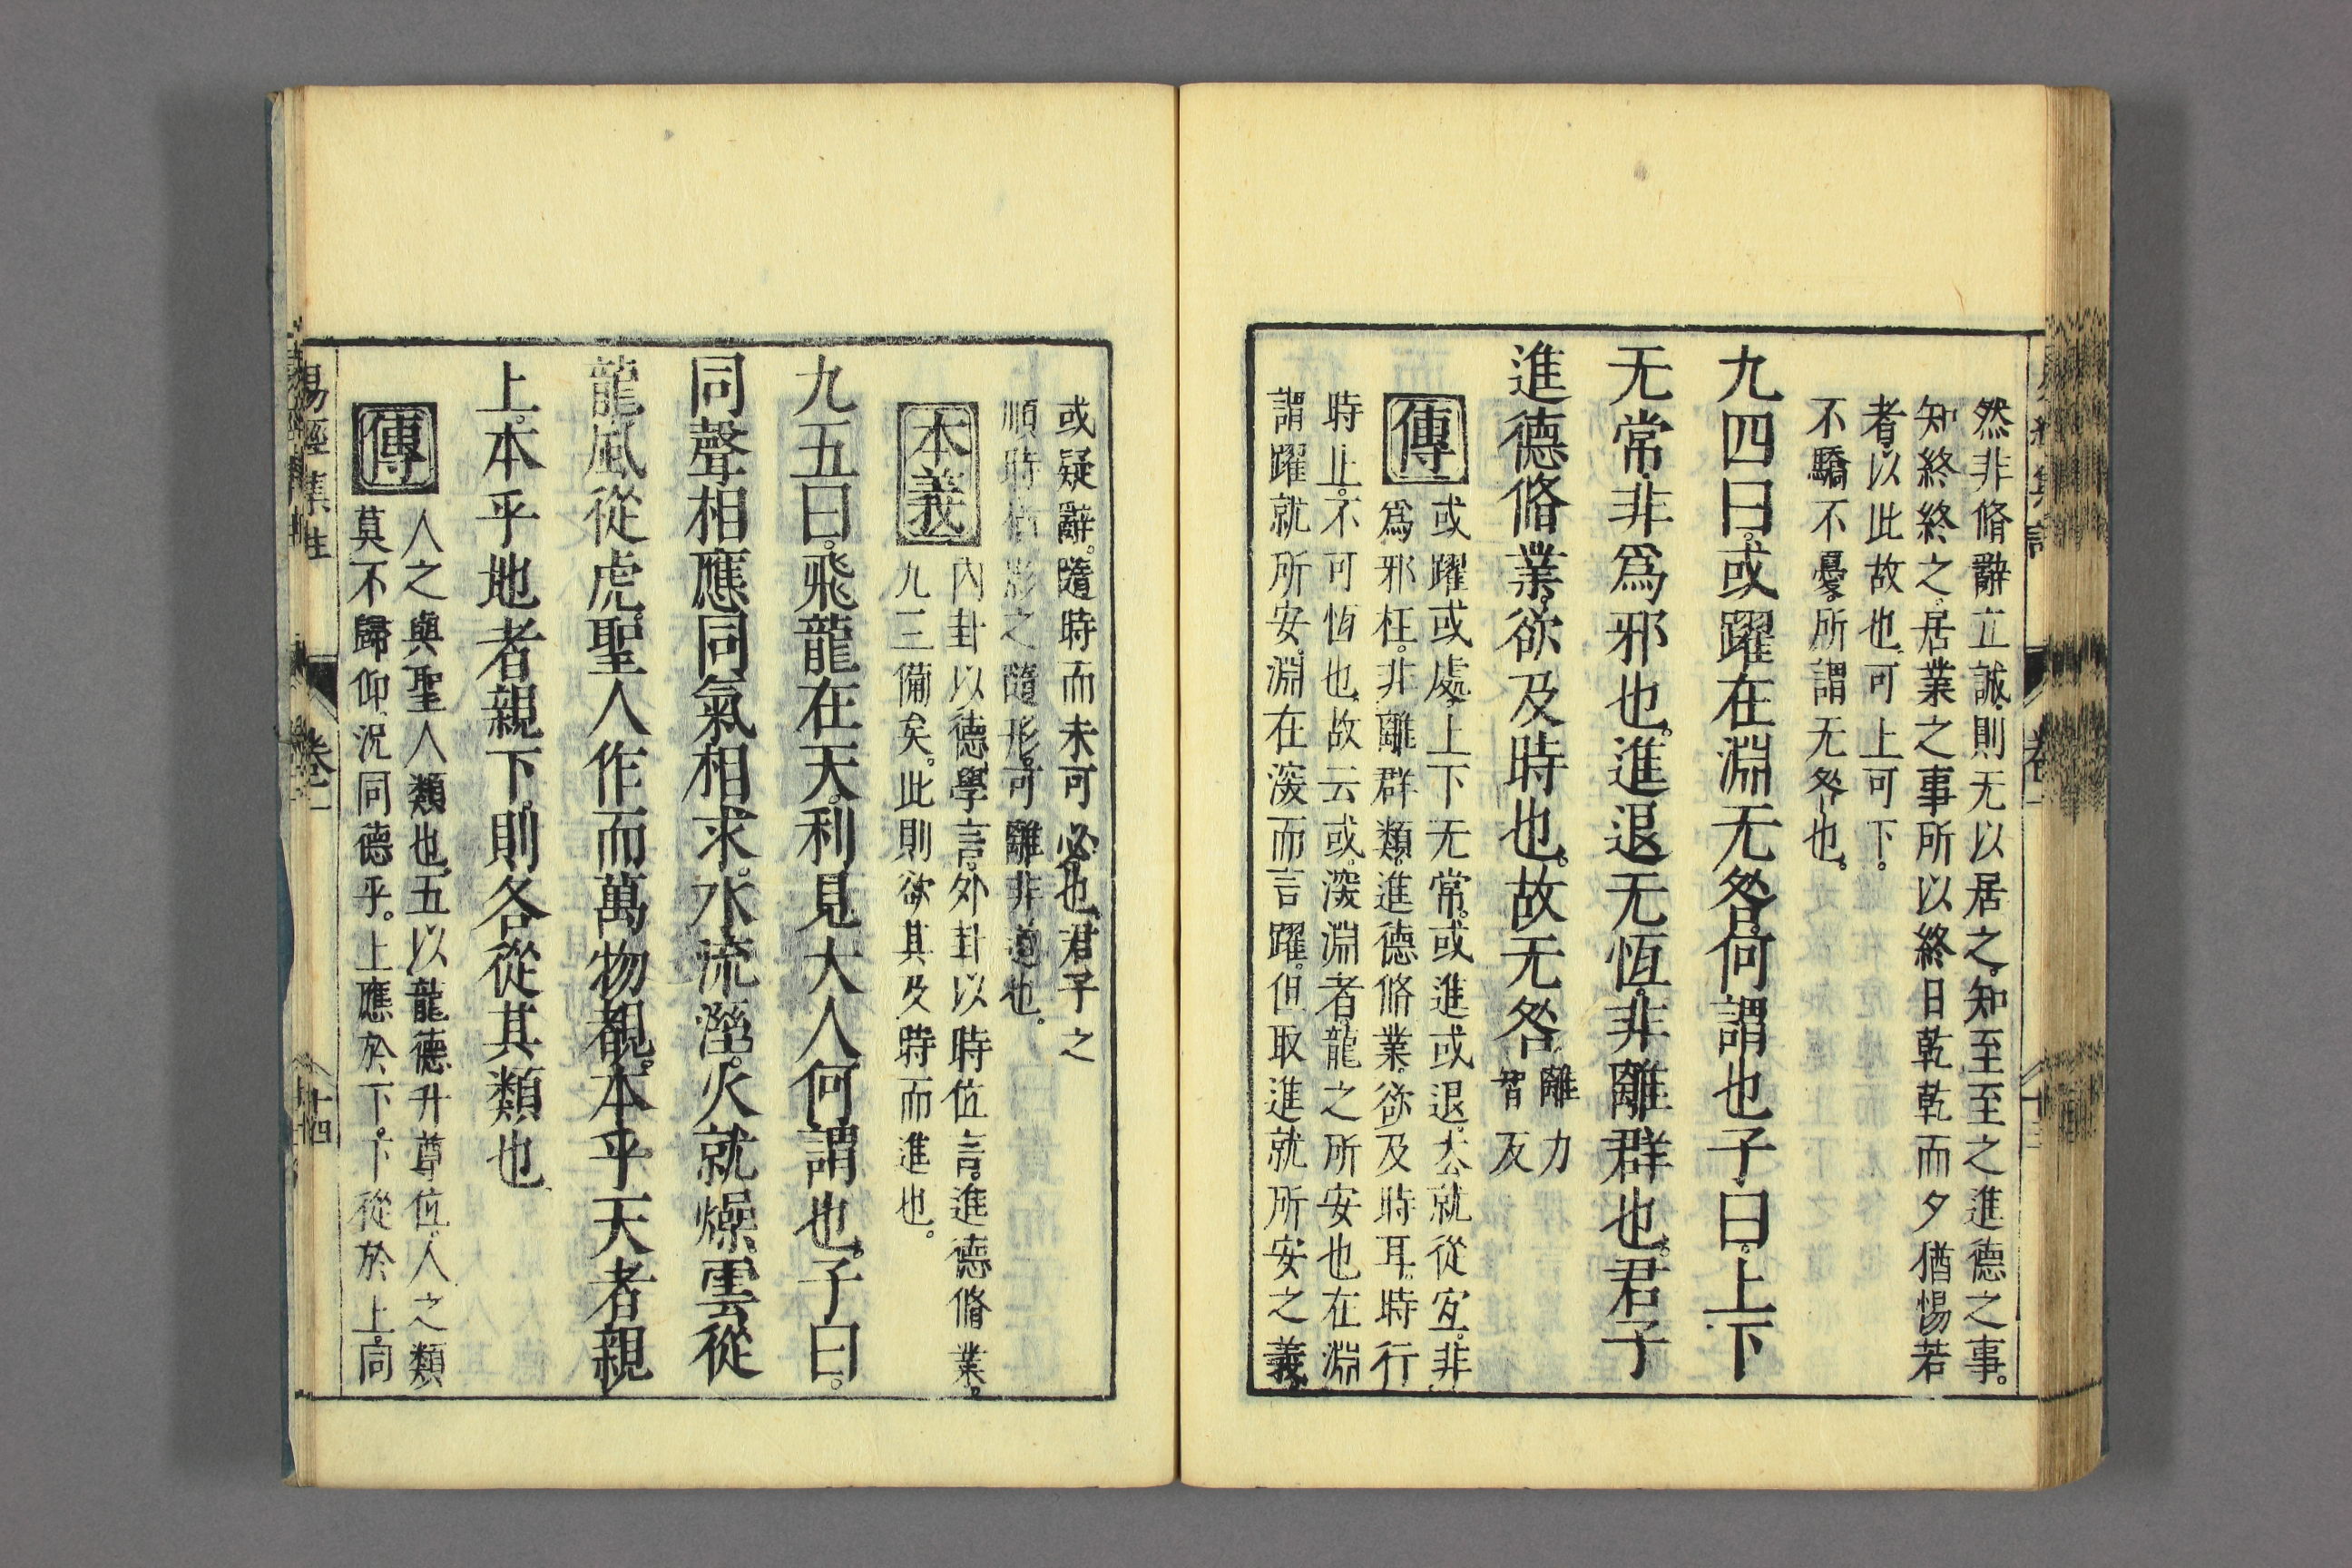 然非脩辭立誠則无以居之知至至之進德之事。
知終終之居業之事所以終日乾乾而夕猶惕若
者以此故也可上可下。
不驕不憂所謂无咎也。
九四曰或躍在淵无咎何謂也子曰上下
无常非爲邪也進退无恆非離群也君子
進德脩業欲及時也故无咎 離力
智反
傳 或躍或處上下无常或進或退去就從宜非
爲邪枉非離群類進德脩業欲及時耳時行
時止不可恆也故云或深淵者龍之所安也在淵
謂躍就所安淵在深而言躍但取進就所安之義
或疑辭隨時而未可必也君子之
順時猶影之隨形可離非道也。
本義 內卦以德學言外卦以時位言進德脩業。
九三備矣此則欲其及時而進也。
九五曰飛龍在天利見大人何謂也子曰。
同聲相應同氣相求水流溼火就燥雲從
龍風從虎聖人作而萬物覩本乎天者親
上本乎地者親下則各從其類也
傳 人之與聖人類也五以龍德升尊位人之類
莫不歸仰況同德乎上應於下下從於上同
易經集註 卷一 十四